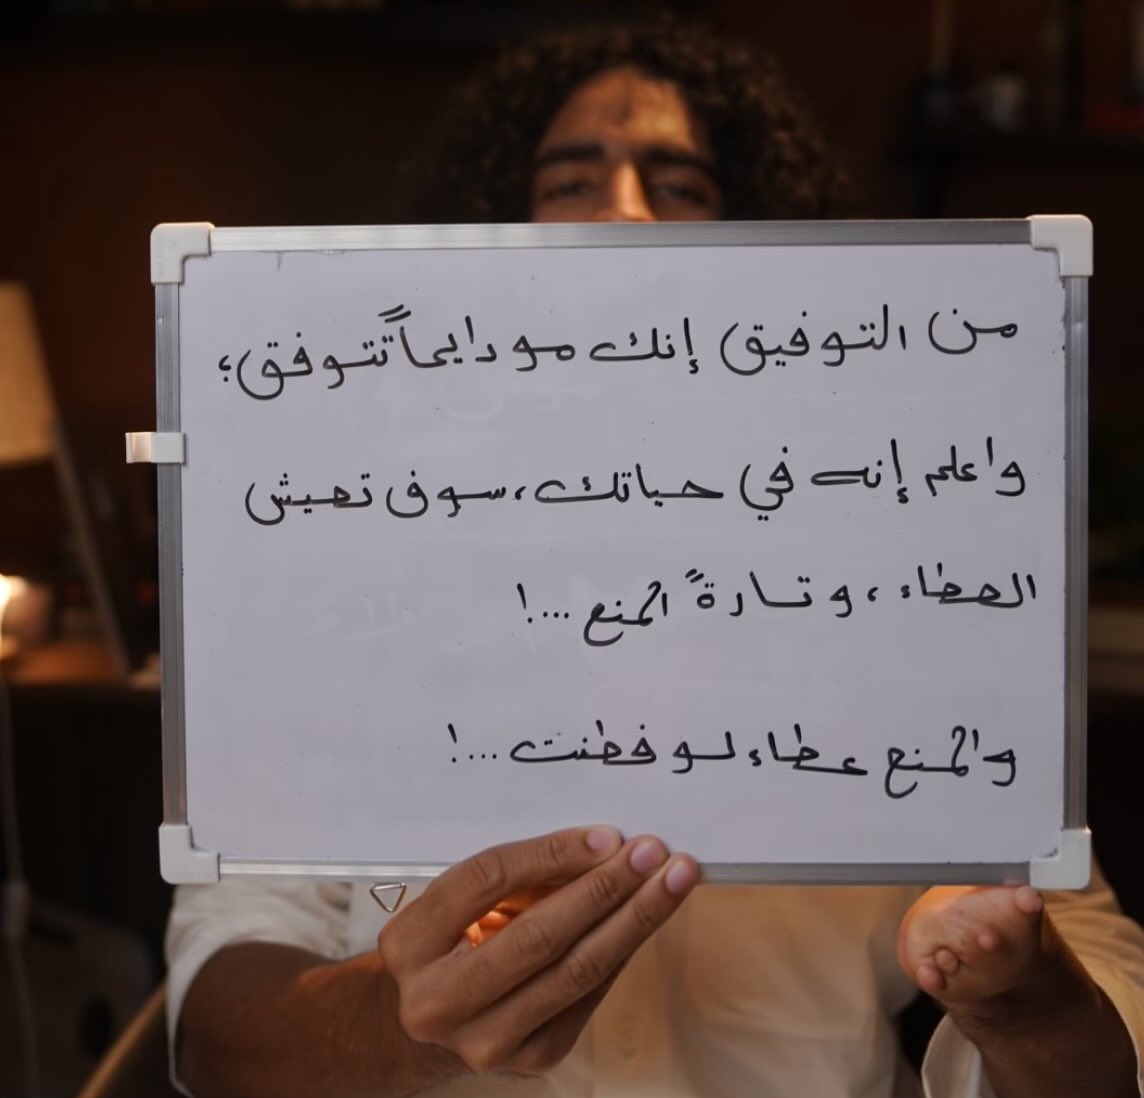 من التوفيق إنك مو دايماً تتوفق؛
واعلم إنه في حياتك، سوف تعيش
العطاء، وتارةً المنع...!
والمنع عطاء لو فطنت...!